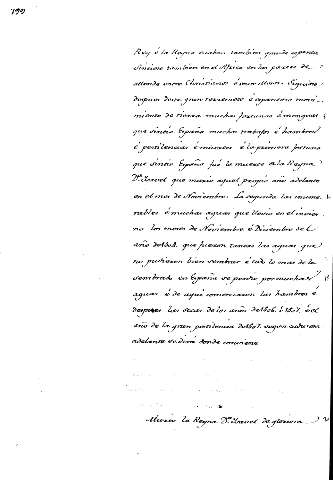 Rey é la Reyna ambos tambien
sintiose tambien en el Africa en las partes de
allende entre Christianos é moros. Siguieron
despues deste gran terremoto é espantoso movi-
miento de tierra muchas fortunas é menguas
que sintio España muchos trabajos é hambres
é pestilencias é muertes é la primera fortuna
que sintio España fué la muerte de la Reyna
Dª Isavel que murio aquel propio año adelante
en el mes de Noviembre. La segunda las innume-
rables é muchas aguas que llovio en el invier-
no los meses de Noviembre é Diciembre del
año de 1504. que fueron tantas las aguas que
no pudieron bien sembrar é todo lo mas de lo
sembrado en España se perdio por muchas
aguas é de aqui comenzaron las hambres é
despues las secas de los años de 1506. é 1507. é el
año de la gran pestilencia de 1507. segun cada cosa
adelante se dirá donde conviene
Murio la Reyna Dª Isavel de gloriosa